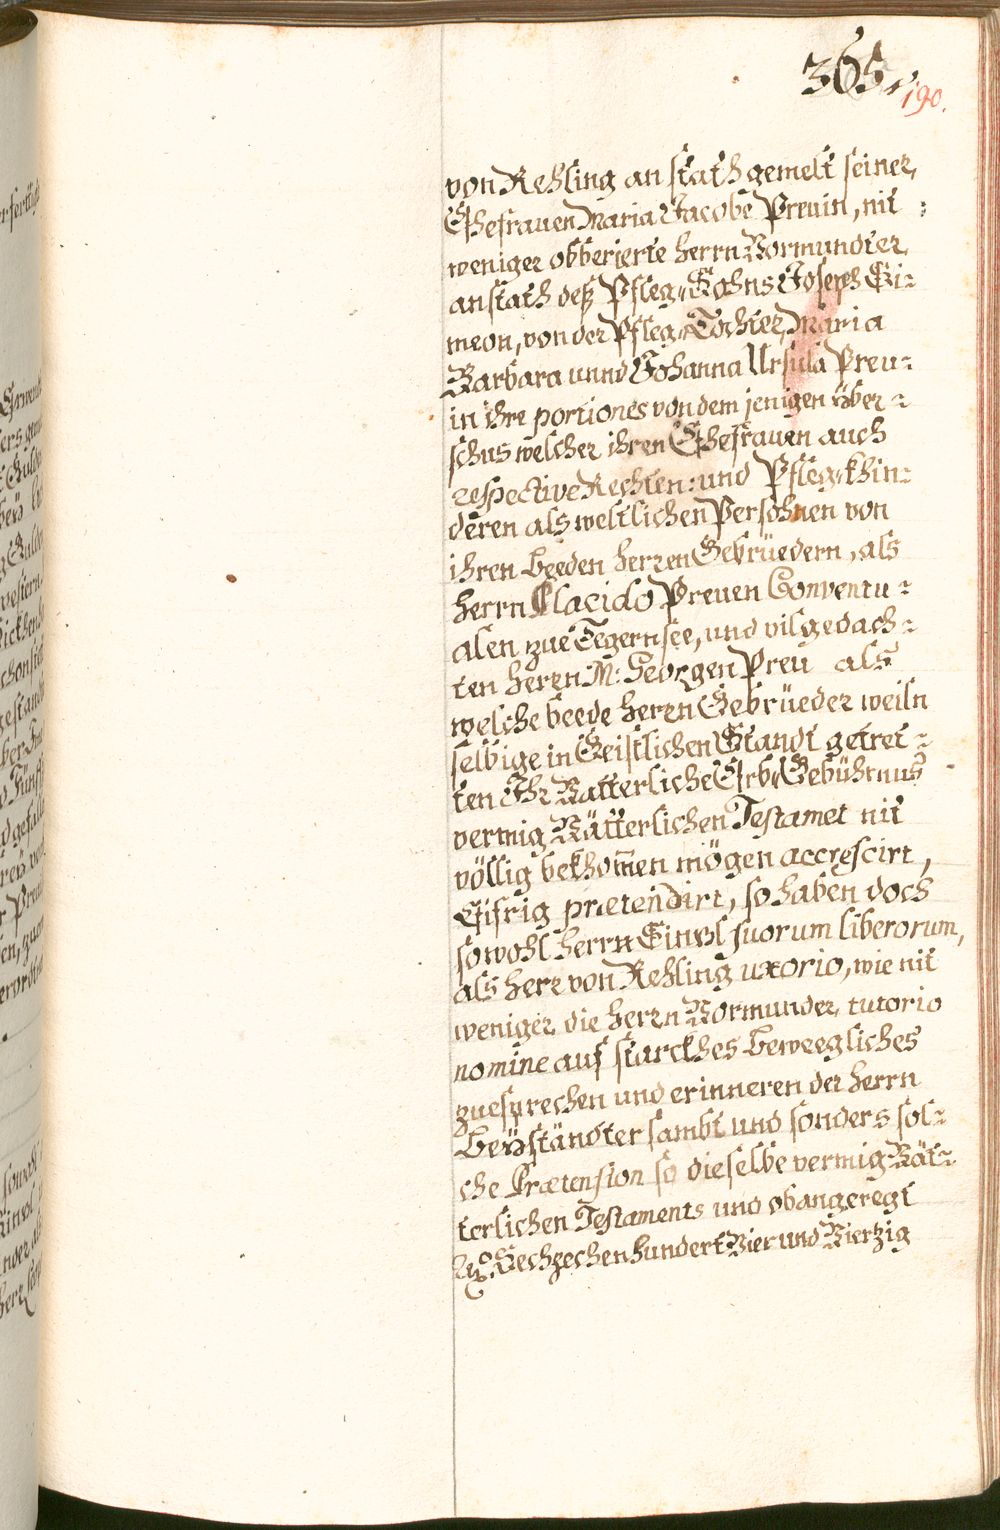 365.
190.
von Rehling an stath gemelt seiner
Ehefrauen Maria Jacobe Preuin, nit
weniger obberierte herrn Vormundter
an stath deß Pfleg„Sohns Joseph Si-
meon, von der Pfleg„Tochter Maria
Barbara unnd Johanna Ursula Preu-
in ihre portiones von dem jenigen yber-
schus welcher ihren Ehefrauen auch
respective Rechten: und Pfleg„khin-
deren als weltlichen Persohnen von
ihren beeden herren Gebrüedern, als
herrn Placido Preuen Conventu-
alen zue Tegernsee, und vilgedach-
ten herrn M: Georgen Preu als
welche beede herrn Gebrüeder weiln
selbige in Geistlichen Standt getret-
ten Ihr Vatterliche Erb„Gebührnus
vermig Vätterlichen Testamet nit
völlig bekhom̅en mögen accrescirt,
Eifrig prætendirt, so haben doch
sowohl herrn Einwl suorum liberorum,
als herr von Rehling uxorio, wie nit
weniger die herrn Vormunder, tutorio
nomine auf starckhes bewegliches
zuesprechen und erinneren der herrn
beyständter sambt und sonders sol-
che Prætension so dieselbe vermig Vät-
terlichen Testaments und obangeregt
Sechzechenhundert Vier und Vierzig